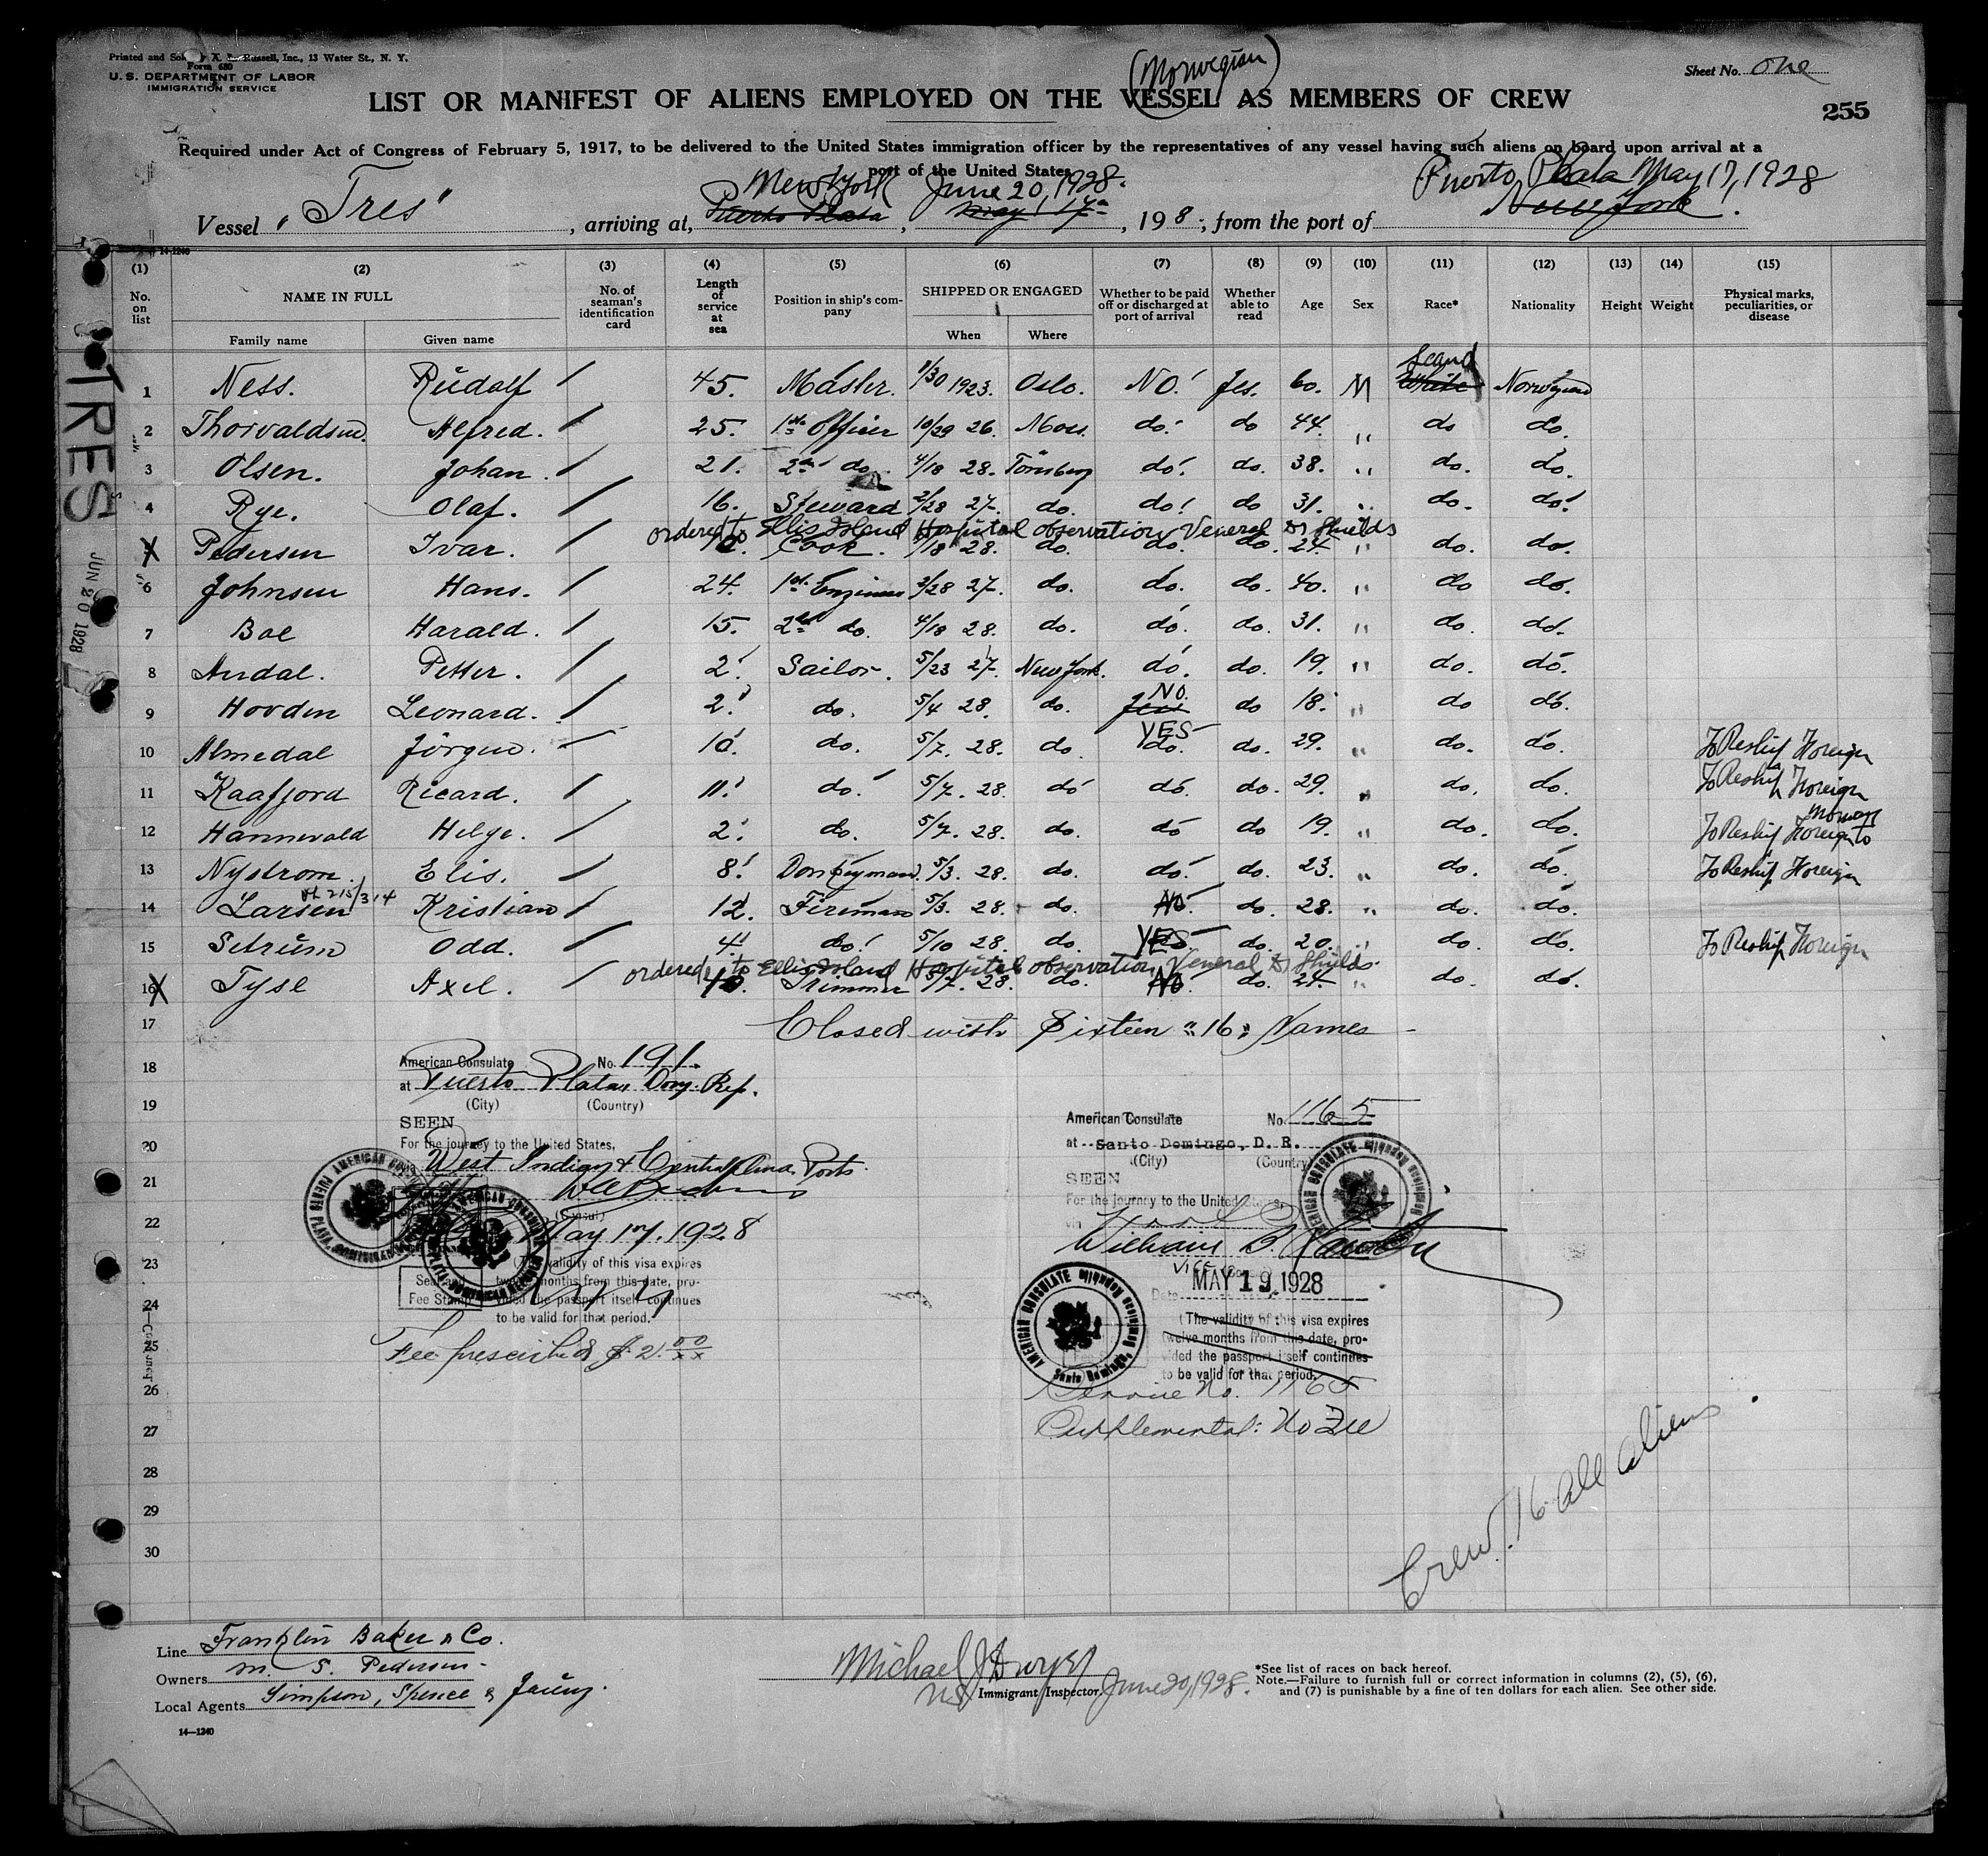 Printed and Sold by A. L. Russell, Inc., 13 Water St., N. Y.
Form 680
U. S. DEPARTMENT OF LABOR
IMMIGRATION SERVICE
(Norwegian)
Sheet No. One
LIST OR MANIFEST OF ALIENS EMPLOYED ON THE VESSEL AS MEMBERS OF CREW
255
Required under Act of Congress of February 5, 1917, to be delivered to the United States immigration officer by the representatives of any vessel having such aliens on board upon arrival at a
port of the United States
New York June 20, 1928. Puerto Plata May 17, 1928
Vessel "Tres", arriving at, Puerto Plata, May 17th, 1928; from the port of New York.
14-1240
(1) (2) (3) (4) (5) (6) (7) (8) (9) (10) (11) (12) (13) (14) (15)
No. on list NAME IN FULL No. of seaman's identification card Length of service at sea Position in ship's company SHIPPED OR ENGAGED Whether to be paid off or discharged at port of arrival Whether able to read Age Sex Race* Nationality Height Weight Physical marks, peculiarities, or disease
Family name Given name When Where
Scand
1 Ness. Rudolf 45. Master. 1/30 1923. Oslo. NO. Yes. 60. M White Norwegian
2 Thorvaldsen. Alfred. 25. 1st Officer 10/29 26. Moss. do. do 44. " do do.
3 Olsen. Johan. 21. 2nd do. 4/18 28. Tönsberg do. do. 38. " do. do.
4 Rye. Olaf. 16. Steward 2/28 27. do. do. do 31. " do. do.
ordered to Ellis Island Hospital observation Veneral Dr Shields
5 Pedersen Ivar. Cook. 4/18 28. do. do. do. 24. " do. do.
6 Johnsen Hans. 24. 1st Engineer 2/28 27. do. do. do. 40. " do do.
7 Boe Harald. 15. 2nd do. 4/18 28. do. do. do. 31. " do. do.
8 Andal. Petter. 2. Sailor. 5/23 27. New York. do. do. 19. " do. do.
NO.
9 Hovden Leonard. 2. do. 5/4 28. do. Yes do 18. " do do.
YES
10 Almedal Jörgen. 10. do. 5/7. 28. do. do. do. 29. " do. do. To Reship Foreign
11 Kaafjord Ricard. 11. do. 5/7. 28. do do. do. 29. " do. do. To Reship Foreign
Norway
12 Hannevold Helge. 2. do. 5/7. 28. do. do do 19. " do. do. To Reship Foreign to
13 Nystrom. Elis. 8. Donkeyman. 5/3. 28. do. do. do. 23. " do. do. To Reship Foreign
14 Larsen Kristian 12. Fireman 5/3. 28. do. NO. do. 28. " do. do.
15 Setrum Odd. 4. do. 5/10 28. do. YES do. 20. " do. do. To Reship Foreign
ordered to Ellis Island Hospital observation Veneral Dr Shields.
16 Tyse Axel. 10. Trimmer 5/7. 28. do. NO do. 24. " do. do.
17 Closed with Sixteen "16" Names
18
19
20
21
22
23
24
25
26
27
28
29
30
American Consulate No. 191.
at Puerto Plata, Dom. Rep.
(City) (Country)
SEEN
For the journey to the United States,
West Indian & Central Amer. Ports.
(Consul)
May 17, 1928
(The validity of this visa expires
twelve months from this date, pro-
vided the passport itself continues
to be valid for that period.
Seal and
Fee Stamp
Fee prescribed $2.00/xx
American Consulate No. 1165
at Santo Domingo, D. R.
(City) (Country)
SEEN
For the journey to the United States,
via
William B.
Vice
Date MAY 19 1928
(The validity of this visa expires
twelve months from this date, pro-
vided the passport itself continues
to be valid for that period.
AMERICAN CONSULATE
Santo Domingo, Dominican Republic
Service No. 1165
Supplemental: No Fee
Crew. 16 all aliens
TRES
JUN 20 1928
Line Franklin Baker & Co.
Owners M. S. Pedersen
Local Agents Simpson, Spence & Young.
14—1240
Michael J Dwyer
U.S. Immigrant Inspector. June 20, 1928.
*See list of races on back hereof.
Note.—Failure to furnish full or correct information in columns (2), (5), (6),
and (7) is punishable by a fine of ten dollars for each alien. See other side.